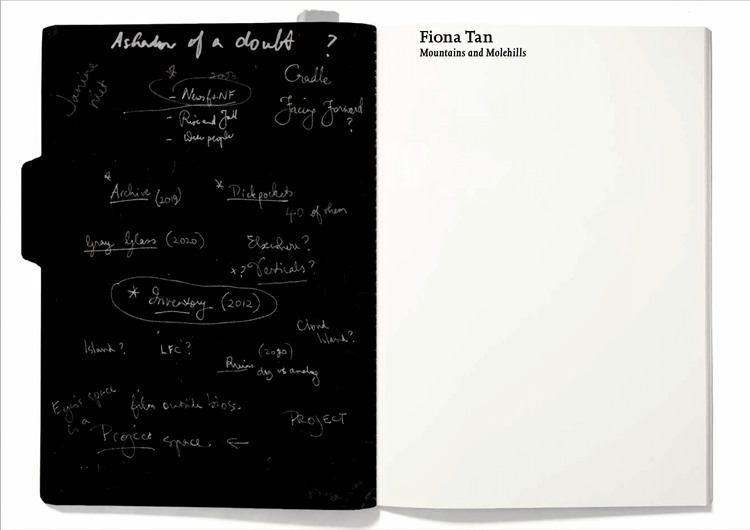 A shadow of a doubt ?
Janine
Niet
* 2023
- Newsf+NF
- Rise and Fall
- Dear people
Cradle
Facing Forward
?
* Archive (2019)
* Pickpockets
40 of them
Gray Glass (2020)
Elsewhere?
*? Verticals?
* Inventory (2012)
Cloud
Island?
Island?
LFC?
(2020)
Ruins
dig vs analog
Eye's space
is a
Project space. ←
film outside bios.
PROJECT
Fiona Tan
Mountains and Molehills